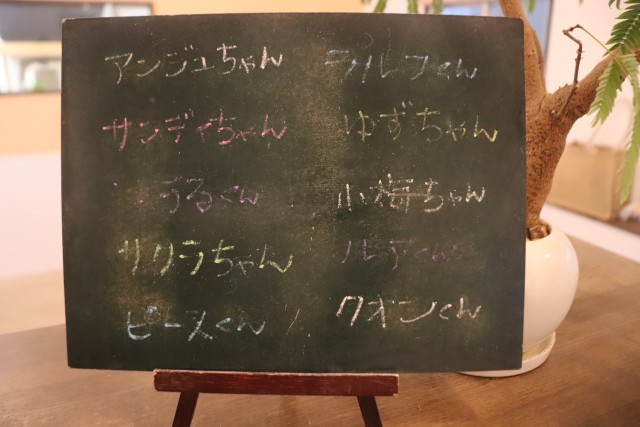 アンジュちゃん
ラルフくん
サンディちゃん
ゆずちゃん
うるくん
小梅ちゃん
サリラちゃん
ピースくん
クオンくん